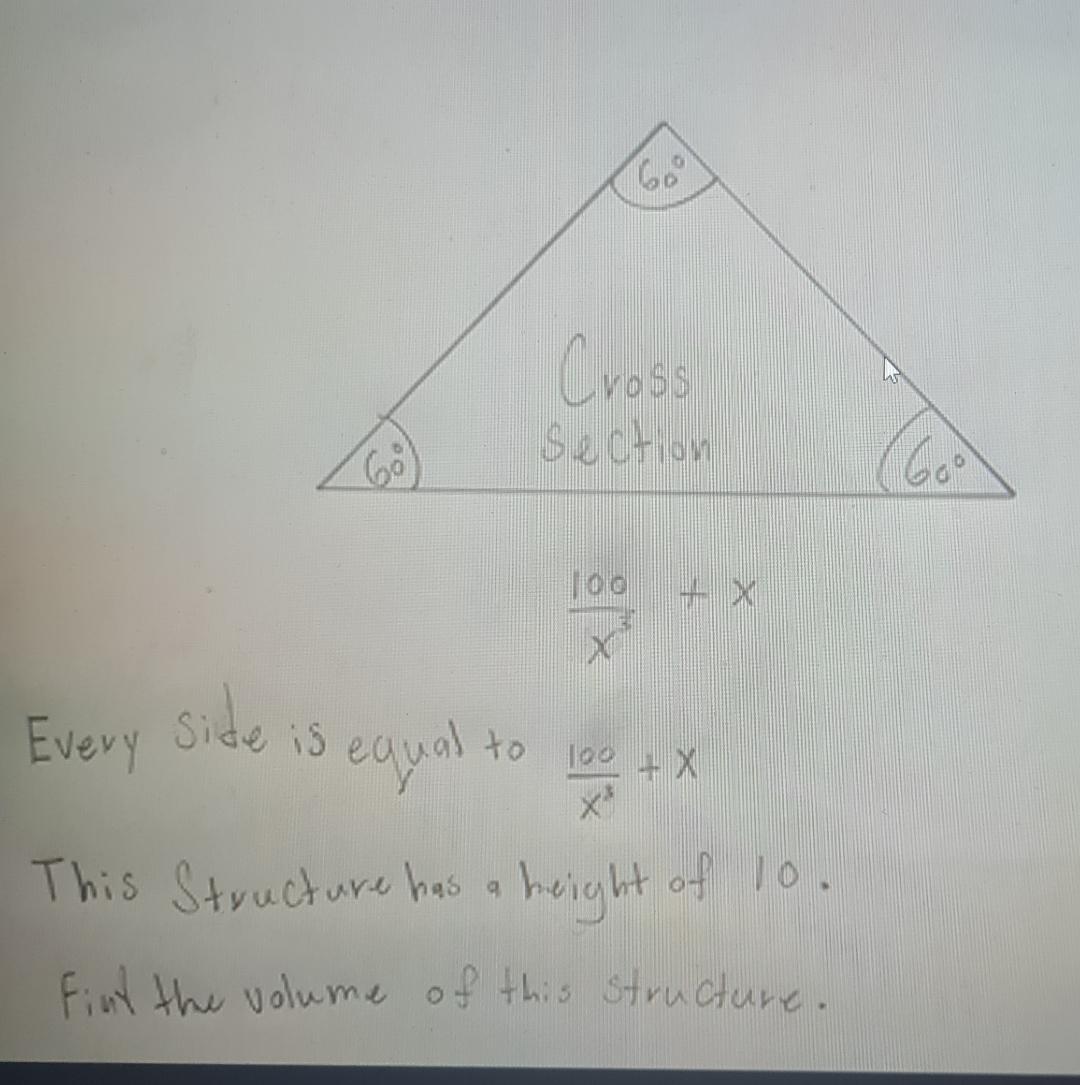 60°
Cross
section
60°
60°
100/x³ + x
Every side is equal to 100/x³ + x
This Structure has a height of 10.
Find the volume of this structure.